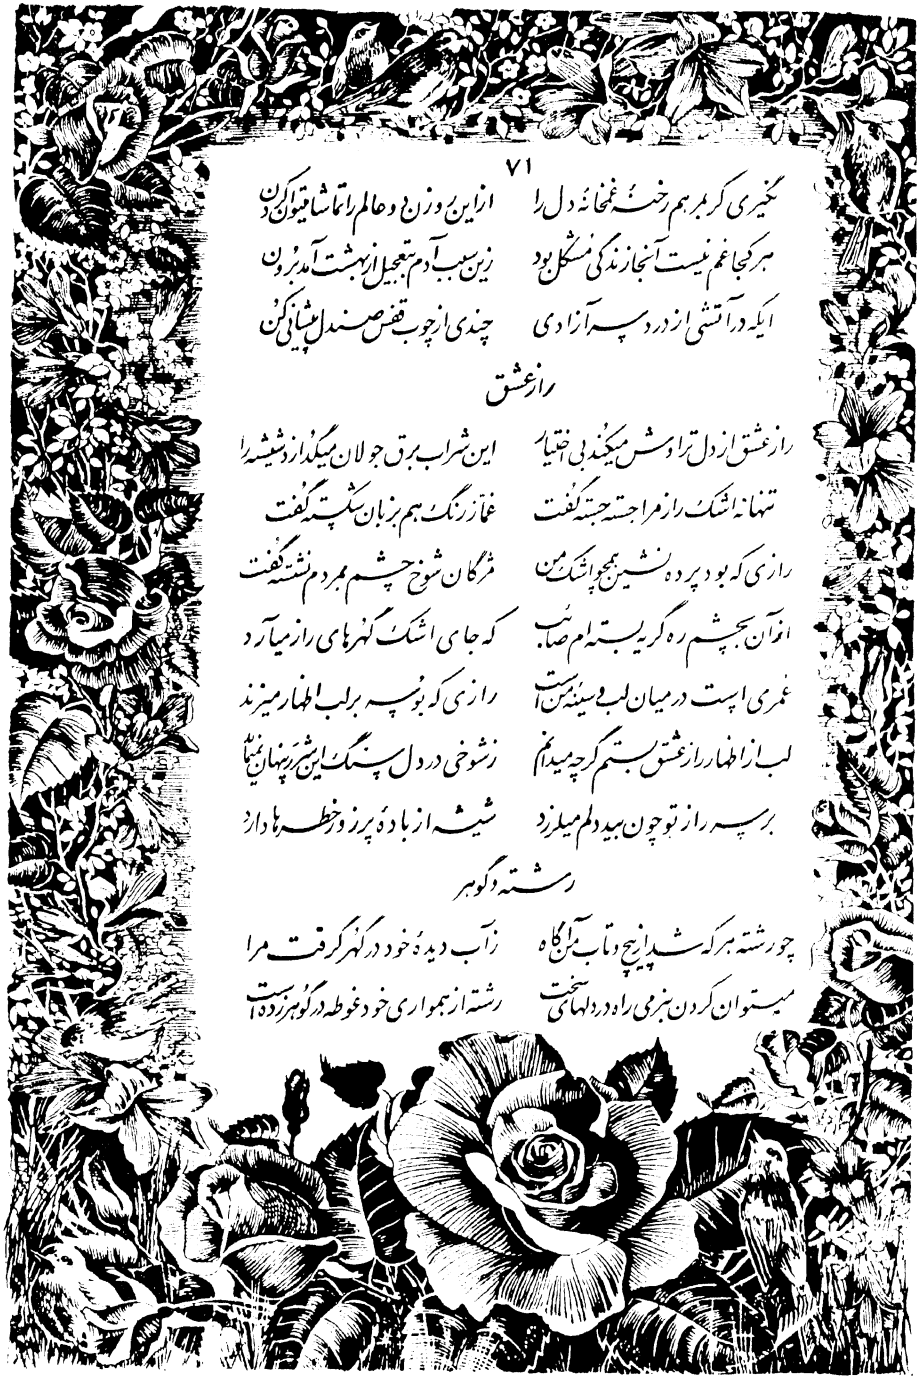 ۷۱
نگیری گر بمرهم رخنهٔ غمخانهٔ دل را ازاین روزن دو عالم را تماشا میتوان کردن
هرکجا غم نیست آنجا زندگی مشکل بود زین سبب آدم بتعجیل از بهشت آمد برون
ایکه در آتشی از درد سر آزادی چندی از چوب قفس صندل پیشانی کن
راز عشق
راز عشق از دل تراوش میکند بی اختیار این شراب برق جولان میگدازد شیشه را
تنها نه اشک راز مرا جسته جسته گفت غماز رنگ هم بزبان شکسته گفت
رازی که بود پرده نشین همچو اشک من مژگان شوخ چشم بمردم نشسته گفت
ازآن بچشم ره گریه بسته‌ام صائب که جای اشک گهرهای راز میآرد
عمری است در میان لب و سینهٔ من است رازی که بوسه بر لب اظهار میزند
لب از اظهار راز عشق بستم گرچه میدانم زشوخی در دل سنگ این شرر پنهان نمیماند
بر سر راز تو چون بید دلم میلرزد شیشه از بادهٔ پر زور خطرها دارد
رشته و گوهر
چو رشته هرکه شد از پیچ و تاب من آگاه زآب دیدهٔ خود در گهر گرفت مرا
میتوان کردن بنرمی راه در دلهای سخت رشته از همواری خود غوطه در گوهر زده است